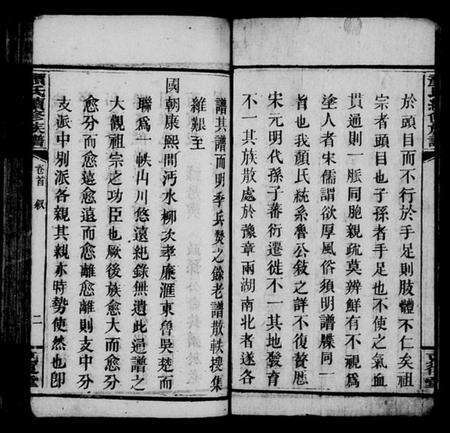 於頭目而不行於手足則肢體不仁矣祖
宗者頭目也子孫者手足也不使之氣血
貫通則一脈同胞親疏莫辨鮮有不視爲
塗人者宋儒謂欲厚風俗須明譜牒同一
旨也我顏氏統系魯公敘之詳不復贅厯
宋元明代孫子蕃衍遷徙不一其地發育
不一其族散處於豫章兩湖南北者遂各
譜其譜而明季兵燹之餘老譜散軼搜集
維艱至
國朝康熙間沔水柳次孝廉滙東魯吳楚而
聯爲一帙山川悠遠紀錄無遺此通譜之
大觀祖宗之功臣也厥後族愈大而愈分
愈分而愈遠愈遠而愈離愈離則支中分
支派中別派各親其親亦時勢使然也卽
氏續修族譜
卷首
叙
二